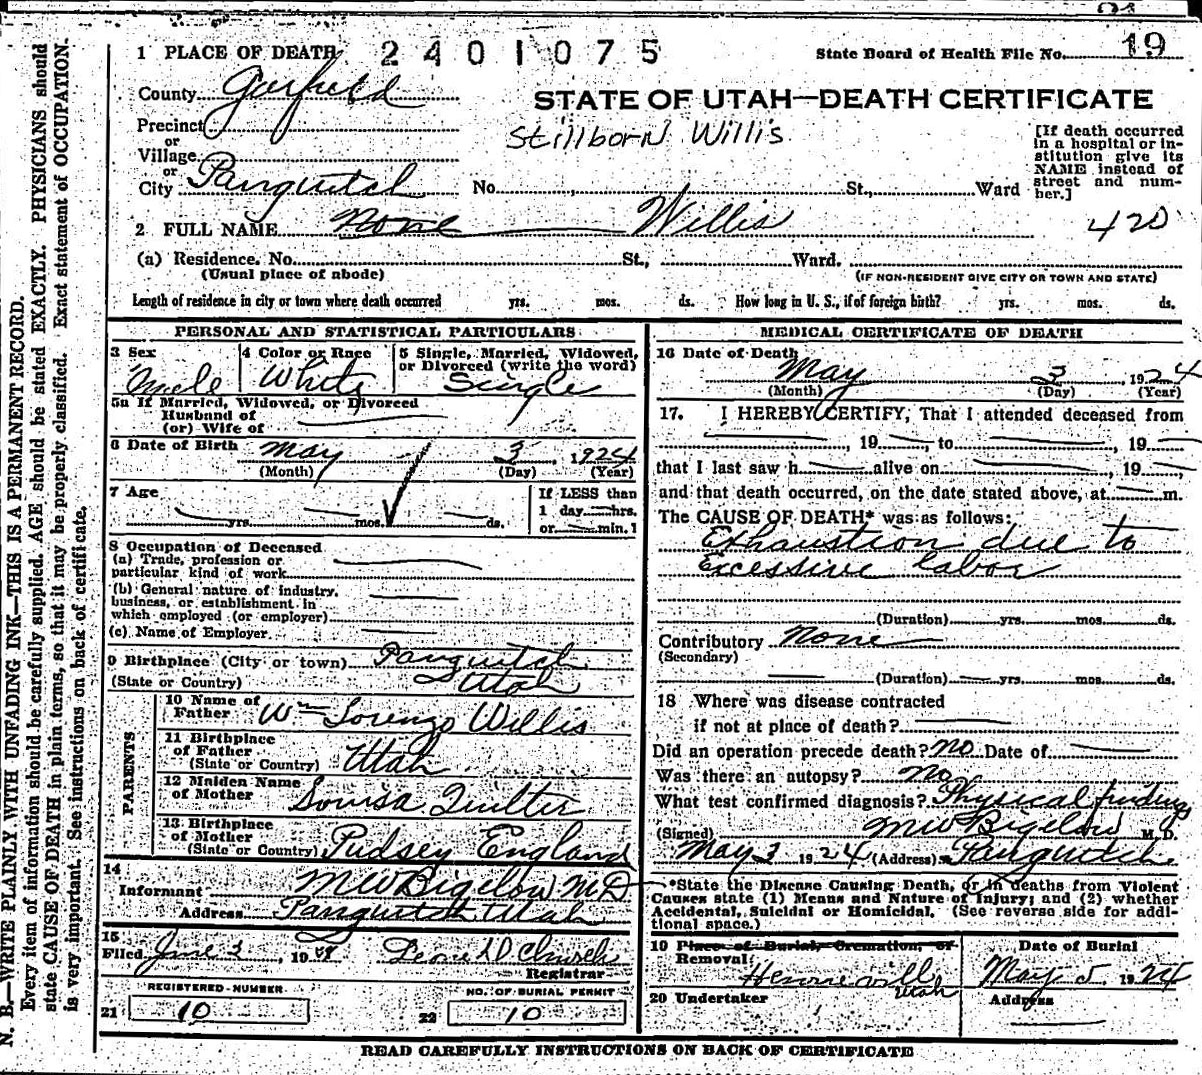 1 PLACE OF DEATH 2401075 State Board of Health File No. 19
County Garfield
STATE OF UTAH—DEATH CERTIFICATE
Precinct
or
Village
or
City Panguitch No. St., Ward
Stillborn Willis
[If death occurred
in a hospital or in-
stitution give its
NAME instead of
street and num-
ber.]
2 FULL NAME None Willis
420
(a) Residence. No. St., Ward.
(Usual place of abode) (IF NON-RESIDENT GIVE CITY OR TOWN AND STATE)
Length of residence in city or town where death occurred yrs. mos. ds. How long in U. S., if of foreign birth? yrs. mos. ds.
PERSONAL AND STATISTICAL PARTICULARS
3 Sex 4 Color or Race 5 Single, Married, Widowed,
or Divorced (write the word)
Male White Single
5a If Married, Widowed, or Divorced
Husband of
(or) Wife of
6 Date of Birth May 3, 1924
(Month) (Day) (Year)
7 Age If LESS than
1 day hrs.
yrs. mos. ds. or min. 1
8 Occupation of Deceased
(a) Trade, profession or
particular kind of work
(b) General nature of industry,
business, or establishment in
which employed (or employer)
(c) Name of Employer
9 Birthplace (City or town) Panguitch
(State or Country) Utah
PARENTS
10 Name of
Father Wm Lorenzo Willis
11 Birthplace
of Father
(State or Country) Utah
12 Maiden Name
of Mother Louisa Quilter
13 Birthplace
of Mother
(State or Country) Pudsey England
14
Informant M W Bigelow M D
Address Panguitch Utah
15
Filed June 3, 19 D Church
Registrar
REGISTERED NUMBER NO. OF BURIAL PERMIT
21 10 22 10
MEDICAL CERTIFICATE OF DEATH
16 Date of Death
May 3, 1924
(Month) (Day) (Year)
17. I HEREBY CERTIFY, That I attended deceased from
, 19 to , 19
that I last saw h alive on , 19
and that death occurred, on the date stated above, at m.
The CAUSE OF DEATH* was as follows:
Exhaustion due to
Excessive labor
(Duration) yrs. mos. ds.
Contributory None
(Secondary)
(Duration) yrs. mos. ds.
18 Where was disease contracted
if not at place of death?
Did an operation precede death? no Date of
Was there an autopsy? no
What test confirmed diagnosis? Physical findings
(Signed) M W Bigelow M.D.
May 3 1924 (Address) Panguitch
*State the Disease Causing Death, or in deaths from Violent
Causes state (1) Means and Nature of Injury; and (2) whether
Accidental, Suicidal or Homicidal. (See reverse side for addi-
tional space.)
19 Place of Burial, Cremation, or
Removal: Date of Burial
Henrieville Utah May 5 1924
20 Undertaker Address
READ CAREFULLY INSTRUCTIONS ON BACK OF CERTIFICATE
N. B.—WRITE PLAINLY WITH UNFADING INK—THIS IS A PERMANENT RECORD.
Every item of information should be carefully supplied. AGE should be stated EXACTLY. PHYSICIANS should
state CAUSE OF DEATH in plain terms, so that it may be properly classified. Exact statement of OCCUPATION.
is very important. See instructions on back of certificate.